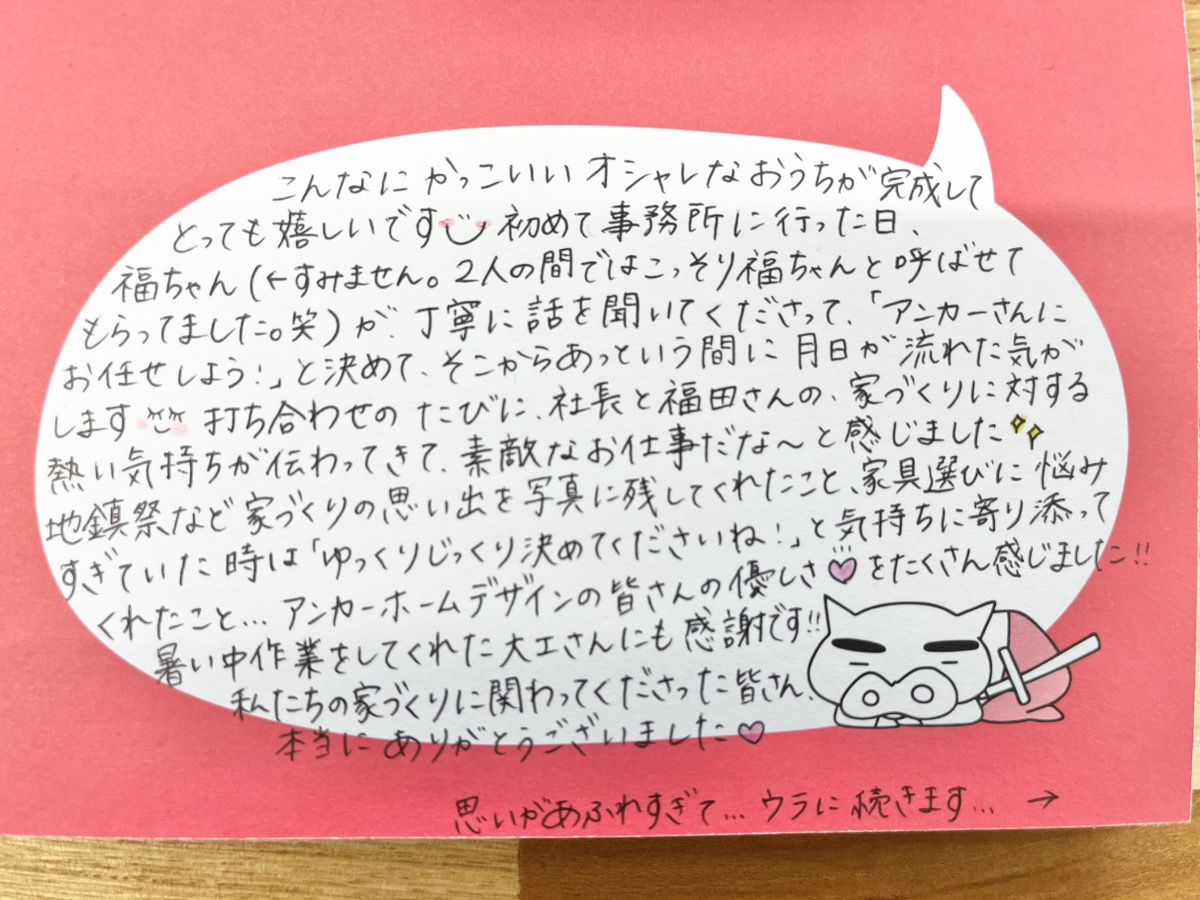 こんなに かっこいい オシャレな おうちが 完成して
とっても 嬉しいです 初めて 事務所に 行った日、
福ちゃん (←すみません。2人の間ではこっそり福ちゃんと 呼ばせて
もらってました。笑) が、丁寧に 話を聞いてくださって、「アンカーさんに
お任せしよう!」と決めて、そこからあっという間に 月日が 流れた気が
します 打ち合わせの たびに、社長と福田さんの、家づくりに対する
熱い気持ちが伝わってきて、素敵なお仕事だな〜と感じました
地鎮祭など 家づくりの思い出を写真に残してくれたこと、家具選びに 悩み
すぎていた 時は「ゆっくりじっくり決めてくださいね!」と気持ちに寄り添って
くれたこと... アンカーホームデザインの皆さんの優しさ♡をたくさん感じました!!
暑い中作業をしてくれた大工さんにも 感謝です!!
私たちの家づくりに関わってくださった皆さん、
本当に ありがとうございました♡
思いがあふれすぎて... ウラに 続きます... →